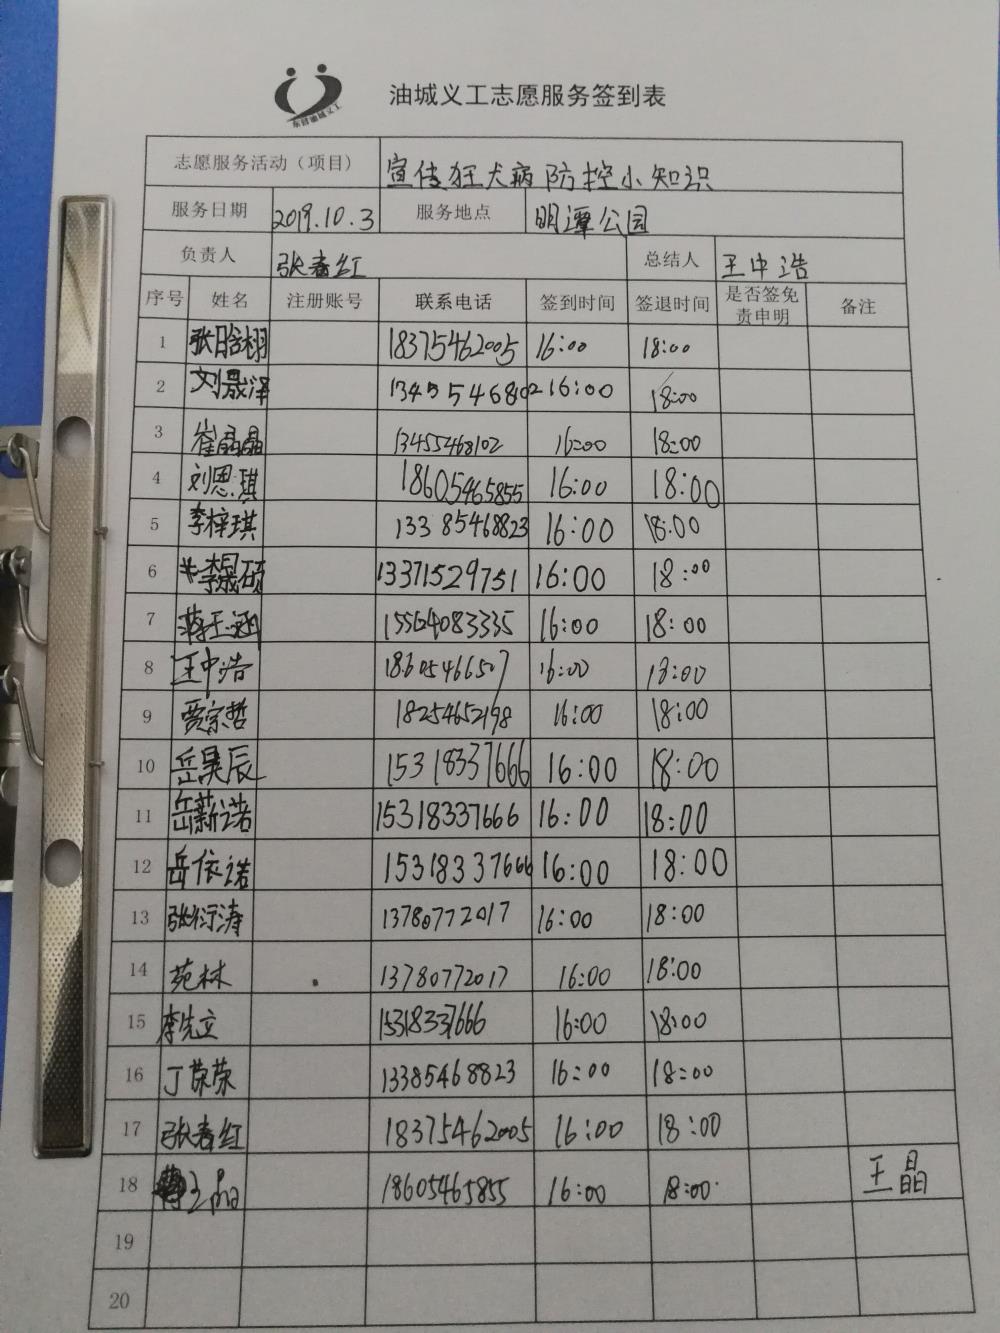 东营油城义工
油城义工志愿服务签到表
志愿服务活动（项目） 宣传狂犬病防控小知识
服务日期 2019.10.3 服务地点 明潭公园
负责人 张春红 总结人 王中浩
序号 姓名 注册账号 联系电话 签到时间 签退时间 是否签免责申明 备注
1 张皓栩 18375462005 16:00 18:00
2 刘晟泽 13455468102 16:00 18:00
3 崔晶晶 13455468102 16:00 18:00
4 刘恩琪 18605465855 16:00 18:00
5 李梓琪 13385468823 16:00 18:00
6 李晟硕 13371529751 16:00 18:00
7 蒋玉涵 15564083335 16:00 18:00
8 王中浩 18605466507 16:00 18:00
9 贾宗哲 18254652198 16:00 18:00
10 岳昊辰 15318337666 16:00 18:00
11 岳薪诺 15318337666 16:00 18:00
12 岳依诺 15318337666 16:00 18:00
13 张衍涛 13780772017 16:00 18:00
14 苑林 13780772017 16:00 18:00
15 李先立 15318337666 16:00 18:00
16 丁荣荣 13385468823 16:00 18:00
17 张春红 18375462005 16:00 18:00
18 王晶 18605465855 16:00 18:00 王晶
19
20